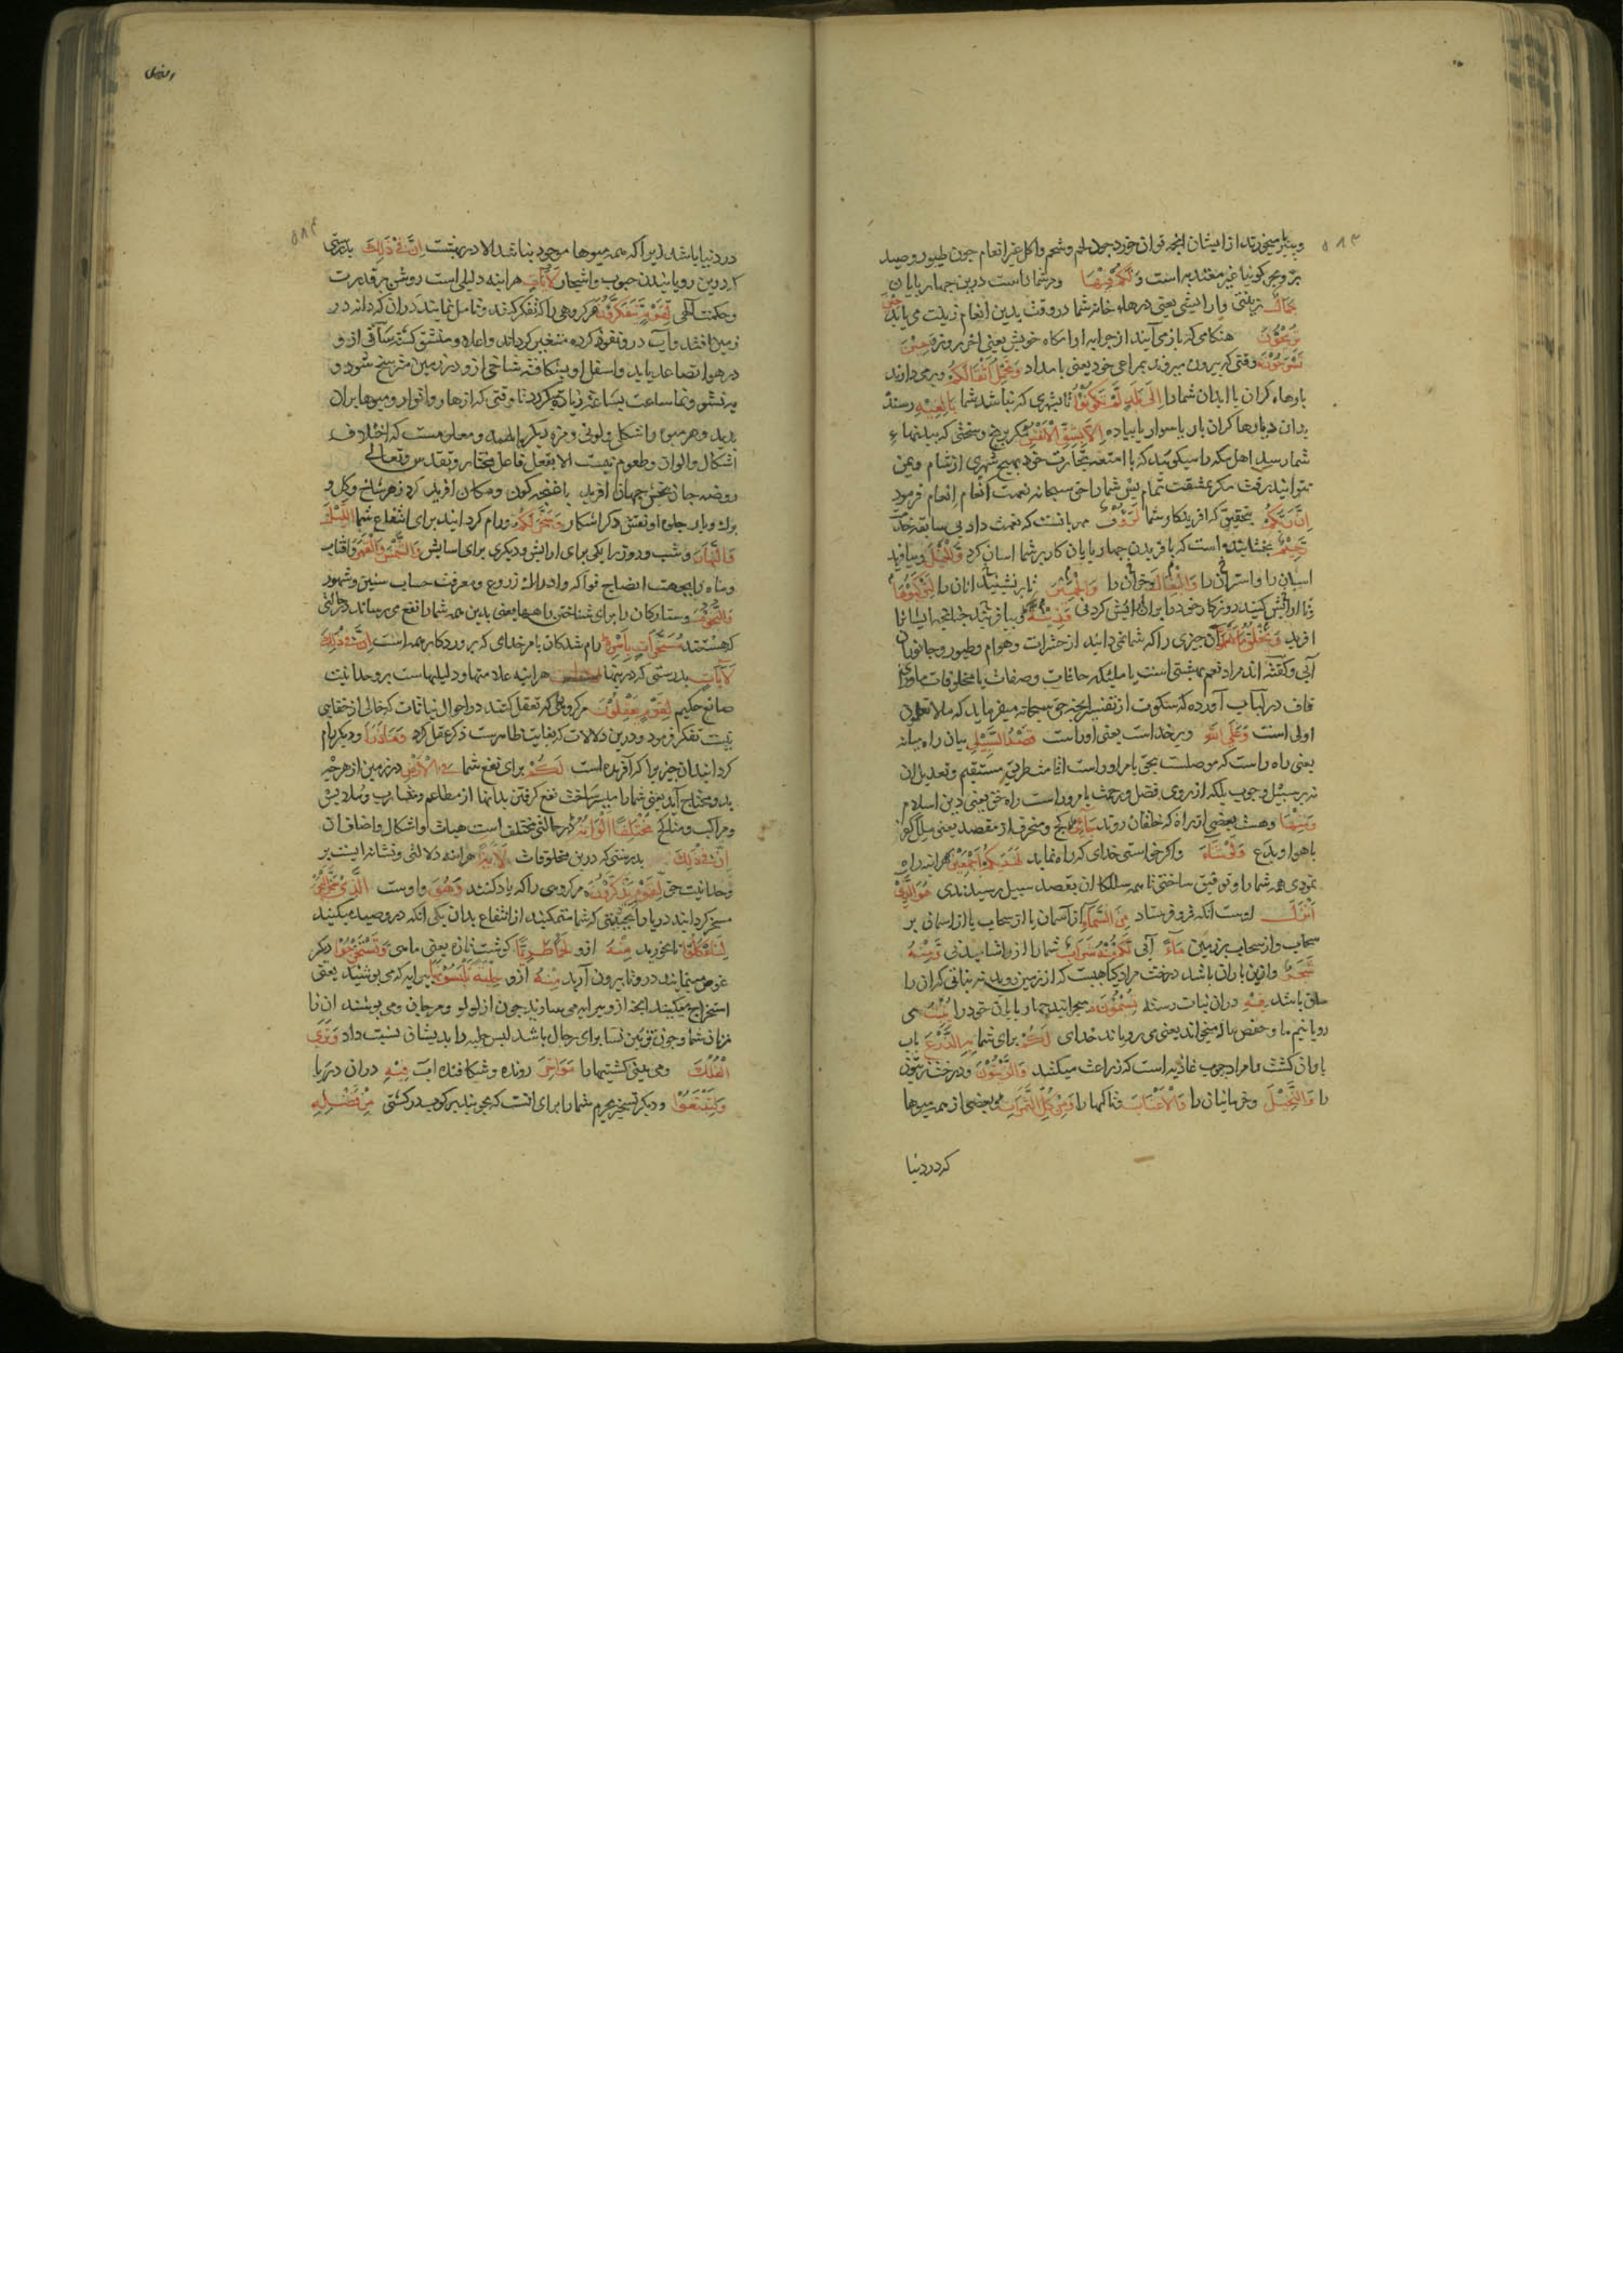 ۵۸۳
و پنیر میخورند از ایشان انچه توان خورد چون لحم و شحم و اکل غیر انعام چون طیور و صید
بر و بحر کوئیا غیر معتد به است وَلَكُمْ فِيهَا و مر شما راست درین چهار پایان
جَمَالٌ زینتی و ارایشی یعنی درهاء خانه شما در وقت بدین انعام زینت می یابد حِينَ
تُرِيحُونَ هنکامی که باز می آیند از چرا به ارامکاه خویش یعنی اخر روز وَحِينَ
تَسْرَحُونَ وقتی که بیرون میروند بمراعی خود یعنی بامداد وَتَحْمِلُ أَثْقَالَكُمْ و بر می دارند
بارهاء کران با ابدان شما را إِلَى بَلَدٍ لَمْ تَكُونُوا تا بشهری که نباشد شما بَالِغِيهِ رسنده
بدان دیارها کران بار یا سوار یا پیاده إِلَّا بِشِقِّ الْأَنْفُسِ مکر برنج و سختی که ببدنهاء
شما رسد اهل مکه را میکوئید که با امتعه تجارت خود بهیچ شهری از شام و یمن
نتوانید رفت مکر بمشقت تمام پس شما را حق سبحانه نعمت انعام انعام فرمود
إِنَّ رَبَّكُمْ بتحقیق که افریدکار شما لَرَءُوفٌ مهربانست که نعمت داد بی سابقه خدمت
رَحِيمٌ بخشاینده است که بافریدن چهار پایان کار بر شما اسان کرد وَالْخَيْلَ و بیافرید
اسبان را و استران را وَالْبِغَالَ و خران را وَالْحَمِيرَ تا بر نشینید انان را لِتَرْكَبُوهَا
تا ارایش کنید روزکار خود را بران ارایش کردنی وَزِينَةً و بیافریند چنانچه ایشان را
افرید وَيَخْلُقُ مَا لَا تَعْلَمُونَ آن چیزی را که شما نمی دانید از حشرات و هوام و طیور و جانوران
آبی و کفته اند مراد نعیم بهشتی است یا ملیکه حافات و صفات یا مخلوقات ماورای
قاف در لباب آورده که سکوت از تفسیر انچه حق سبحانه میفرماید که ما لا تعلمون
اولی است وَعَلَى اللَّهِ و بر خداست یعنی اوراست قَصْدُ السَّبِيلِ بیان راه میانه
یعنی راه راست که موصلست بحق یا مر اوراست اقامت طریق مستقیم و تعدیل ان
نه بر سبیل وجوب بلکه از روی فضل و رحمت یا مروراست راه حق یعنی دین اسلام
وَمِنْهَا و هست بعضی از راه که خلقان روند جَائِرٌ کج و منحرف از مقصد یعنی میل کرده
باهوا و بدع وَلَوْ شَاءَ و اکر خواستی خدای که راه نماید لَهَدَاكُمْ أَجْمَعِينَ هر اینه راه
نمودی همه شما را و توفیق ساختی تا همه سالکان بقصد سبیل رسیدندی هُوَ الَّذِي
أَنْزَلَ اوست انکه فرو فرستاد مِنَ السَّمَاءِ از آسمان یا از سحاب یا از اسمان بر
سحاب و از سحاب بر زمین مَاءً آبی لَكُمْ مِنْهُ شَرَابٌ شما را از و اشامیدنی وَمِنْهُ
شَجَرٌ و ازین باران باشد درخت مراد کیاهیست که از زمین روید نه نباتی که ان را
ساق باشد فِيهِ دران نبات رسته تُسِيمُونَ میچرانید چهار پایان خود را يُنْبِتُ می
رویانیم ما و حفص بیا میخواند یعنی می رویاند خدای لَكُمْ برای شما بِهِ الزَّرْعَ باب
باران کشت و مراد حبوب غاذیه است که زراعت میکنند وَالزَّيْتُونَ و درخت زیتون
را وَالنَّخِيلَ و خرمابنان را وَالْأَعْنَابَ و تاکها را وَمِنْ كُلِّ الثَّمَرَاتِ و بعضی از همه میوها
که در دنیا
النحل
۵۸۴
در دنیا باشد زیرا که همه میوها موجود نباشد الا در بهشت إِنَّ فِي ذَلِكَ بدرستی
که درین رویانیدن حبوب و اشجار لَآيَةً هر اینه دلیلی است روشن بر قدرت
و حکمت الهی لِقَوْمٍ يَتَفَكَّرُونَ مر کروهی را که تفکر کنند و تامل نمایند دران که دانه در
زمین افتد و آب درو نفوذ کرده متغیر کرداند و اعلاء و منشق کشته ساقی از و
در هوا تصاعد یابد و اسفل او بشکافته شاخی از و در زمین مترسخ شود و
بر نشو و نما ساعت بساعت زیادت کردد تا وقتی که ازهار و انوار و میوها بران
پدید و هر میوه را شکلی و لونی و مزه دیکر باشد و معلومست که اختلاف
اشکال و الوان و طعوم نیست الا بفعل فاعل مختار و تقدس و تعالی
روضه جان بخش جهانرا افرید باغچه کون و مکان افرید کرد ز هر شاخ و کل و
برک و بار جلوه او نقش دکر اشکار وَسَخَّرَ لَكُمُ و رام کردانید برای انتفاع شما اللَّيْلَ
وَالنَّهَارَ و شب و روز را یکی برای ارایش و دیکری برای اسایش وَالشَّمْسَ وَالْقَمَرَ و افتاب
و ماه را بجهت انضاج فواکه و ادراک زروع و معرفت حساب سنین و شهور
وَالنُّجُومُ و ستارکان را برای شناختن راهها یعنی بدین همه شما را نفع می رساند در حالتی
که هستند مُسَخَّرَاتٌ بِأَمْرِهِ رام شدکان بامر خدای که پروردکار همه است إِنَّ فِي ذَلِكَ
لَآيَاتٍ بدرستی که درینها هر اینه علامتها و دلیلهاست بر وحدانیت
صانع حکیم لِقَوْمٍ يَعْقِلُونَ مر کروهی که تعقل کنند در احوال نباتات که خالی از خفایی
نیست تفکر فرمود و درین دلالات که بغایت ظاهرست ذکر عقل کرد وَمَا ذَرَأَ و دیکر رام
کردانید ان چیز را که آفریده است لَكُمْ برای نفع شما فِي الْأَرْضِ در زمین از هر چه
بدو محتاج آید یعنی شما را میسر ساخت نفع کرفتن بدانها از مطاعم و مشارب و ملابس
و مراکب و مناکح مُخْتَلِفًا أَلْوَانُهُ در حالتی مختلف است هیات و اشکال و اصناف ان
إِنَّ فِي ذَلِكَ بدرستی که درین مخلوقات لَآيَةً هر اینه دلالتی و نشانه ایست بر
وحدانیت حق لِقَوْمٍ يَذَّكَّرُونَ مر کروهی را که یاد کنند وَهُوَ و اوست الَّذِي سَخَّرَ الْبَحْرَ
مسخر کردانید دریا را بحیثیتی که شما متمکنید از انتفاع بدان یکی انکه درو صید میکنید
لِتَأْكُلُوا تا بخورید مِنْهُ ازو لَحْمًا طَرِيًّا کوشت تازه یعنی ماهی وَتَسْتَخْرِجُوا دیکر
غوص مینمایید درو تا بیرون آرید مِنْهُ ازو حِلْيَةً تَلْبَسُونَهَا پیرایه که می پوشید یعنی
استخراج میکنید انچه ازو پیرایه می سازید چون از لولو و مرجان و می پوشند ان را
زنان شما و چون تزین نسا برای رجال باشد لبس حلیه را بدیشان نسبت داد وَتَرَى
الْفُلْكَ و می بینی کشتیها را مَوَاخِرَ رونده و شکافنده آب فِيهِ دران دریا
وَلِتَبْتَغُوا و دیکر تسخیر بحرم شما را برای انست که بجویید برکوب در کشتی مِنْ فَضْلِهِ